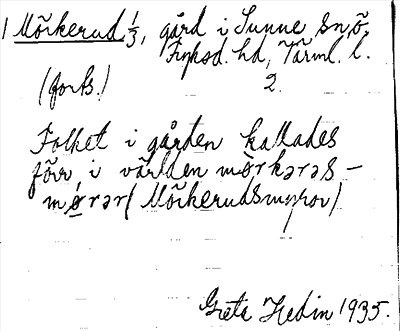 1 Mörkerud 1/3, gård i Sunne sn, ö.
Fryksd. hd, Värml. l.
(forts.) 2.
Folket i gården kallades
förr i världen mörkəras-
mɵrər (Mörkerudsmyror)
Greta Hedin 1935.